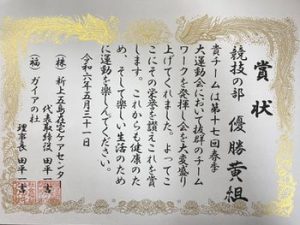 賞状
競技の部 優勝 黄組
貴チームは第十七回春季
大運動会において抜群のチーム
ワークを発揮し会を大変盛り
上げてくれました。よってこ
こにその栄誉を讃えこれを賞
します。これからも健康のた
め、そして楽しい生活のため
に運動を楽しんでください。
令和六年五月三十一日
(株)新上五島在宅ケアセンター
代表取締役 田平一吉
(福)ガイアの社
理事長 田平一吉